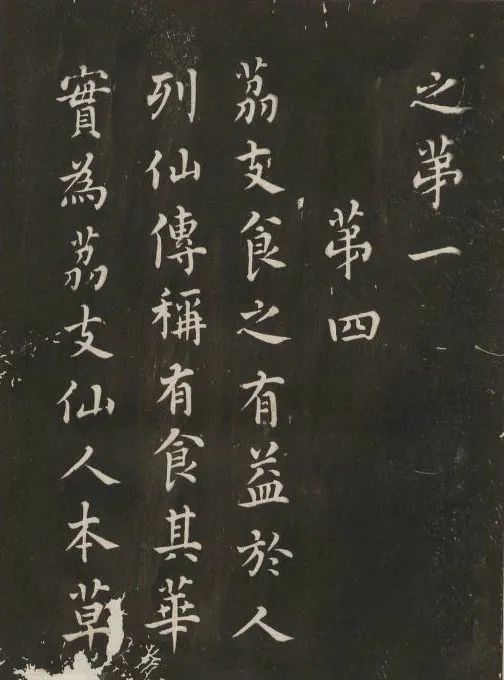 之苐一
苐四
荔支食之有益於人
列仙傳稱有食其華
實為荔支仙人本草